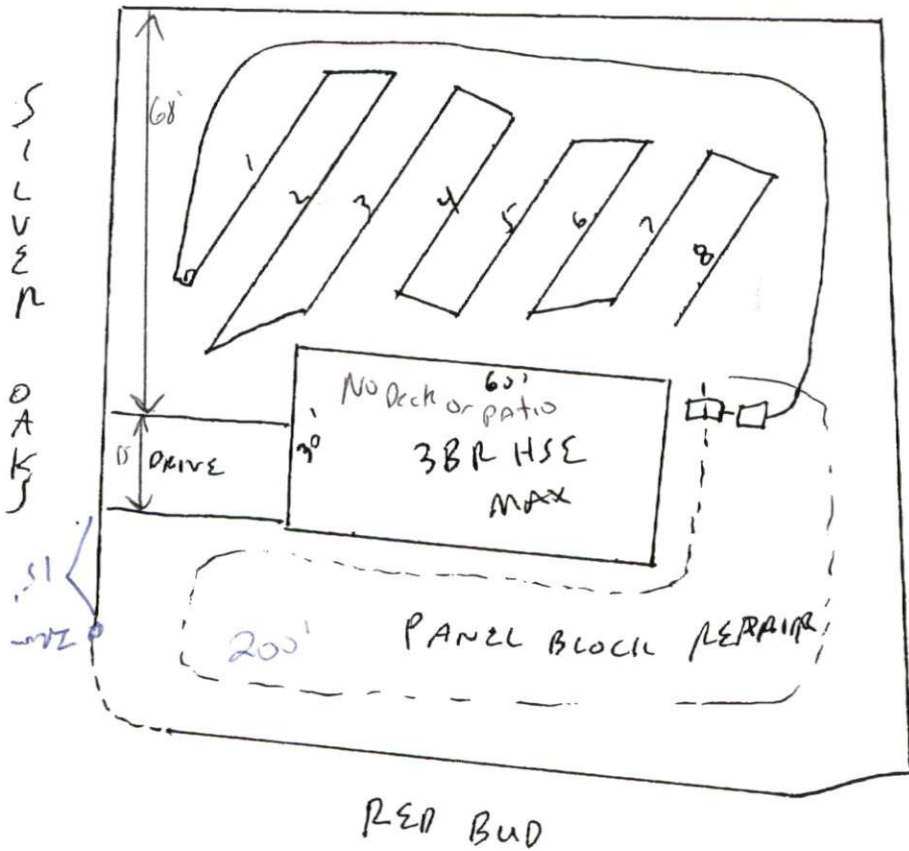 SILVER OAKS
68'
1
2
3
4
5
6
7
8
No Deck or PATIO
60'
30'
3BR HSE
MAX
DRIVE
15'
200'
PANEL BLOCK REPAIR
RED BUD